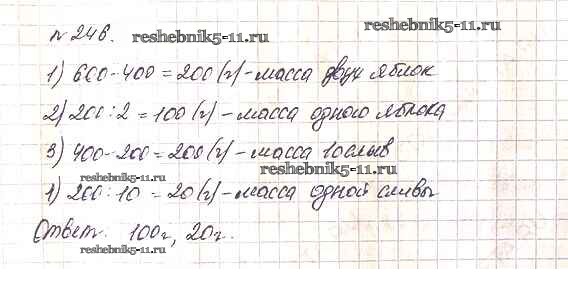 № 246.
reshebnik5-11.ru
reshebnik5-11.ru
1) 600-400=200(г)-масса двух яблок
2) 200:2=100(г)-масса одного яблока
3) 400-200=200(г)-масса 10 слив
reshebnik5-11.ru
4) 200:10=20(г)-масса одной сливы
reshebnik5-11.ru
Ответ: 100г, 20г.
reshebnik5-11.ru